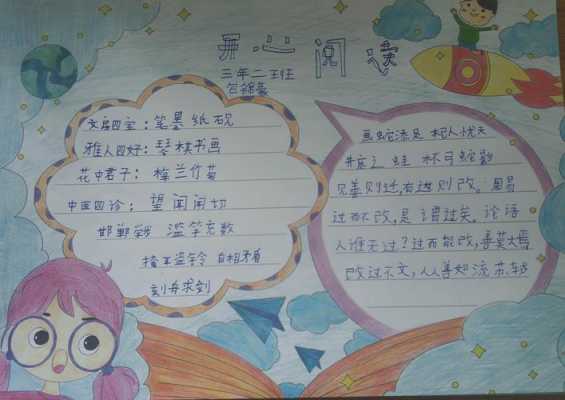 开心阅读
三年二班
文房四宝：笔墨纸砚
雅人四好：琴棋书画
花中君子：梅兰竹菊
中医四诊：望闻问切
邯郸 滥竽充数
掩耳盗铃 自相矛盾
刻舟求剑
画蛇添足 杞人忧天
井底之蛙 杯弓蛇影
见善则迁，有过则改。周易
过而不改，是谓过矣。论语
人谁无过？过而能改，善莫大焉
改过不文，从善如流 苏轼